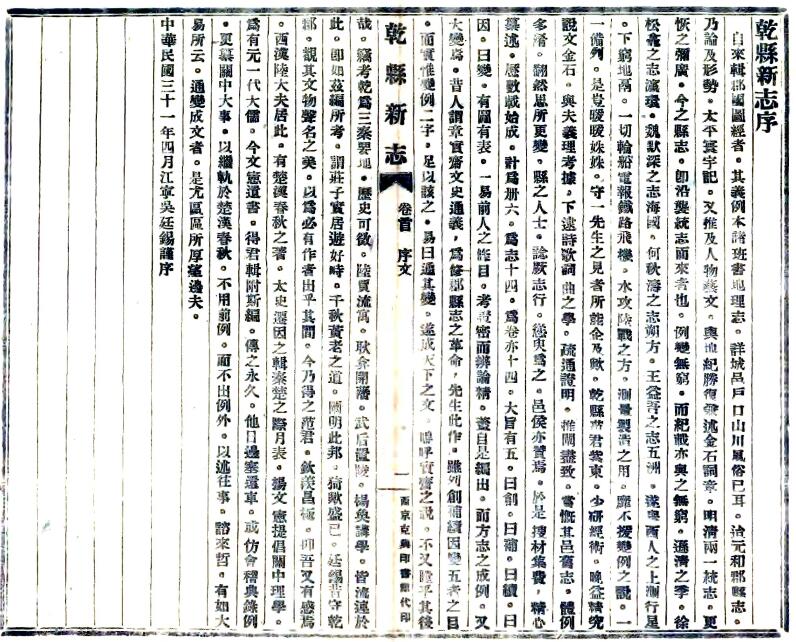 乾縣新志序
自來輯郡國圖經者。其義例本諸班書地理志。詳城邑戶口山川風俗已耳。洎元和郡縣志。
乃論及形勢。太平寰宇記。又推及人物藝文。輿地紀勝復兼述金石詞章。明清兩一統志。更
恢之彌廣。今之縣志。卽沿襲統志而來者也。例變無窮。而紀載亦與之無窮。遜清之季。徐
松龕之志瀛環。魏默深之志海國。何秋濤之志朔方。王益吾之志五洲。遂與西人之上測行星
。下窮地兩。一切輪船電報鐵路飛機。水攻陸戰之方。測量製造之用。靡不援變例之說。一
一備列。是豈暖暖姝姝。守一先生之見者所能企及歟。乾縣范君紫東。少研經術。晚益精究
說文金石。與夫義理考據。下逮詩歌詞曲之學。疏通證明。推闡盡致。嘗慨其邑舊志。體例
多淆。翻然思所更變。縣之人士。諗厥志行。慫臾爲之。邑侯亦贊焉。於是捜材集費。精心
纂述。歷數載始成。計爲册六。爲志十四。爲卷亦十四。大旨有五。曰創。曰補。曰續。曰
因。曰變。有圖有表。一易前人之作目。考證密而辨論精。蓋自是編出。而方志之成例。又
大變焉。昔人謂章實齋文史通義。爲修郡縣志之革命。先生此作。雖列創補續因變五者之目
。而實惟變例二字。足以該之。易曰通其變。遂成天下之文。嗚呼實齋之說。不又瞠乎其後
乾縣新志 卷首 序文 一 西京克興印書館代印
哉。竊考乾爲三秦要地。歷史可徵。陸賈流寓。耿弇開藩。武后置陵。楊奐講學。皆流連於
此。卽如茲編所考。謂莊子實居遊好畤。千秋黃老之道。國明此邦。猗歟盛已。廷錫昔守乾
郡。觀其文物聲名之美。以爲必有作者出乎其間。今乃得之范君。欽羨曷極。抑吾又有感焉
。西漢陸大夫居此。有楚漢春秋之著。太史遷因之輯秦楚之際月表。楊文憲提倡關中理學。
爲有元一代大儒。今文憲遺書。得君輯附斯編。傳之永久。他日過塞遺車。或仿會稽典錄例
。更纂關中大事。以繼軌於楚漢春秋。不用前例。而不出例外。以述往事。諮來哲。有如大
易所云。通變成文者。是尤區區所厚望邊夫。
中華民國三十一年四月江寧吳廷錫謹序